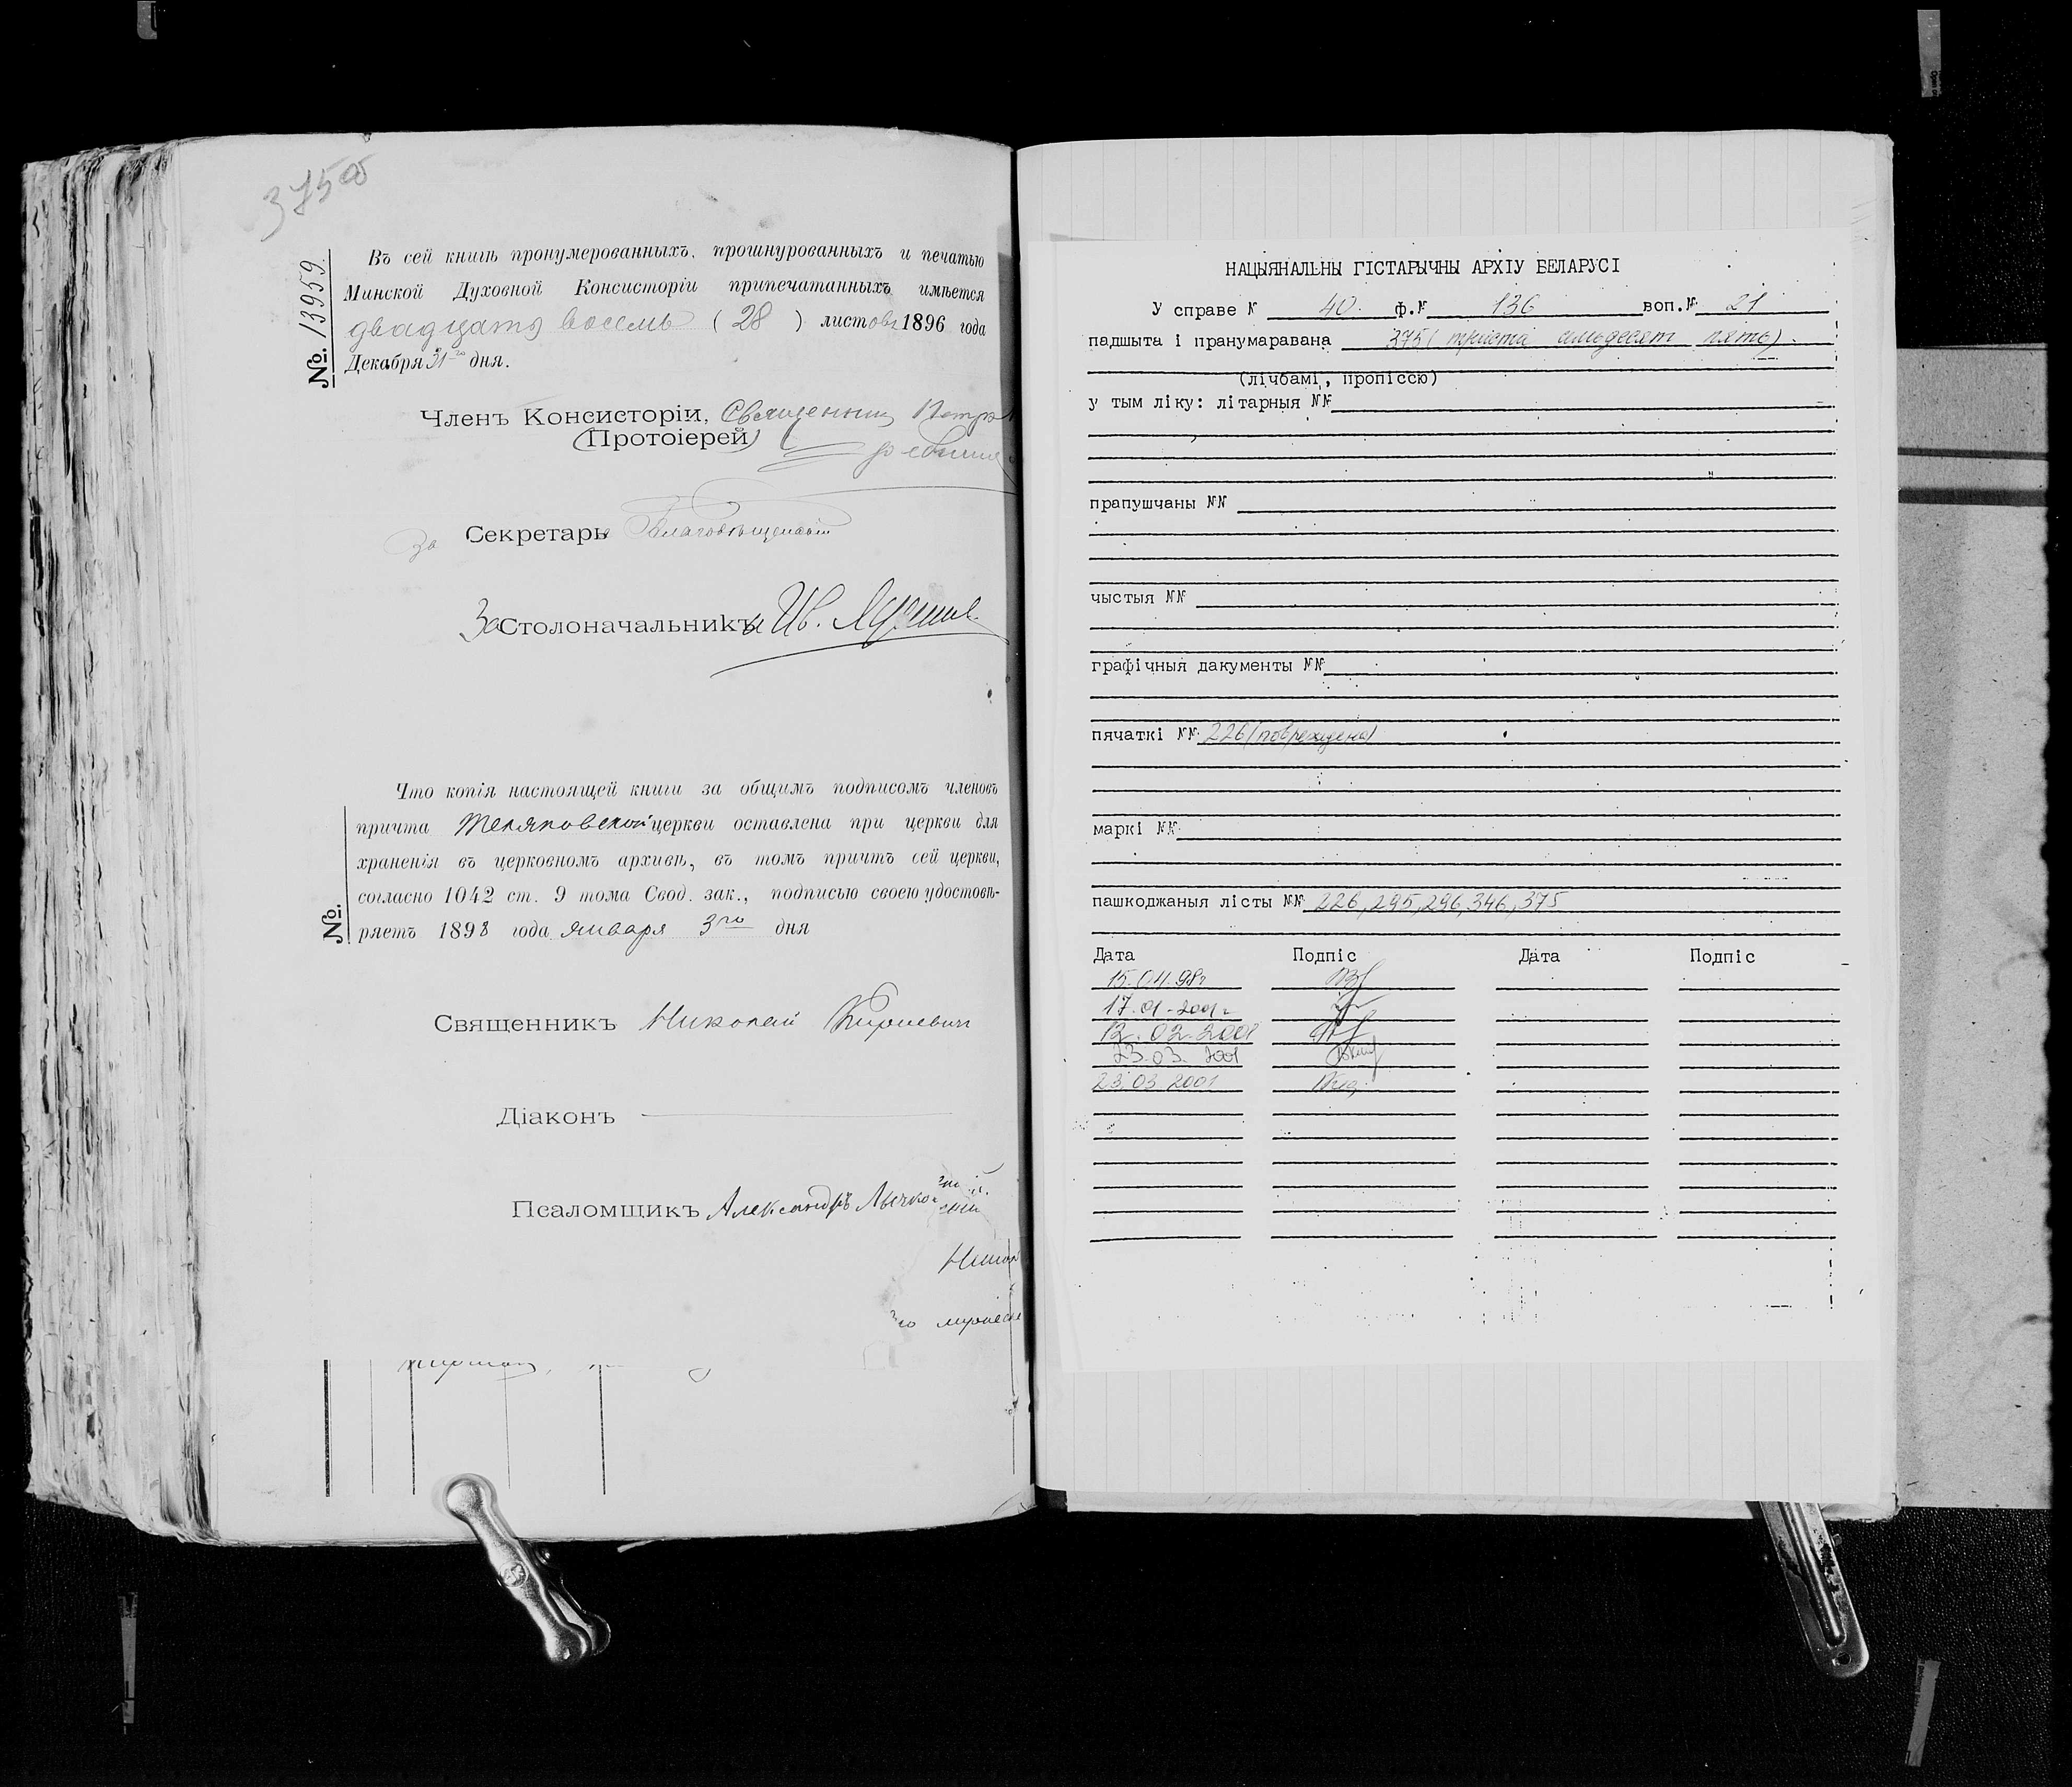 375об
№. 13959
Въ сей книгѣ пронумерованныхъ, прошнурованныхъ и печатью
Минской Духовной Консисторіи припечатанныхъ имѣется
двадцать восемь ( 28 ) листовъ 1896 года
Декабря 31-го дня.
Членъ Консисторіи, Священникъ Петръ
(Протоіерей)
За Секретаря Благовѣщенскій
За Столоначальника Ив.
№.
Что копія настоящей книги за общимъ подписомъ членовъ
причта Теляковской церкви оставлена при церкви для
храненія въ церковномъ архивѣ, въ томъ причтъ сей церкви,
согласно 1042 ст. 9 тома Свод. зак., подписью своею удостовѣ-
ряетъ 1898 года января 3го дня
Священникъ Николай
Діаконъ
Псаломщикъ Александръ
НАЦЫЯНАЛЬНЫ ГІСТАРЫЧНЫ АРХІУ БЕЛАРУСІ
У справе № 40. ф.№ 136 воп.№ 21
падшыта і пранумаравана 375 (триста семьдесят пять).
(лічбамі, пропіссю)
у тым ліку: літарныя №№
прапушчаны №№
чыстыя №№
графічныя дакументы №№
пячаткі №№ 226 (повреждена)
маркі №№
пашкоджаныя лісты №№ 226, 295, 296, 346, 375
Дата Подпіс Дата Подпіс
15.04.98г
17.01-2001г
12.02.2001
23.03.2001
23.03 2001